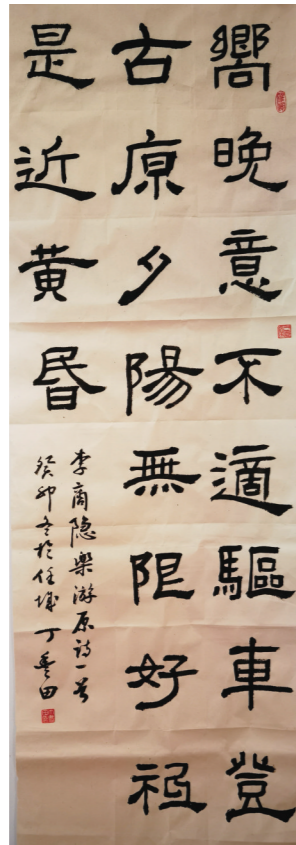 嚮晚意不適驅車登
古原夕陽無限好祗
是近黃昏
李商隐樂游原诗一首
癸卯冬於任城 丁田